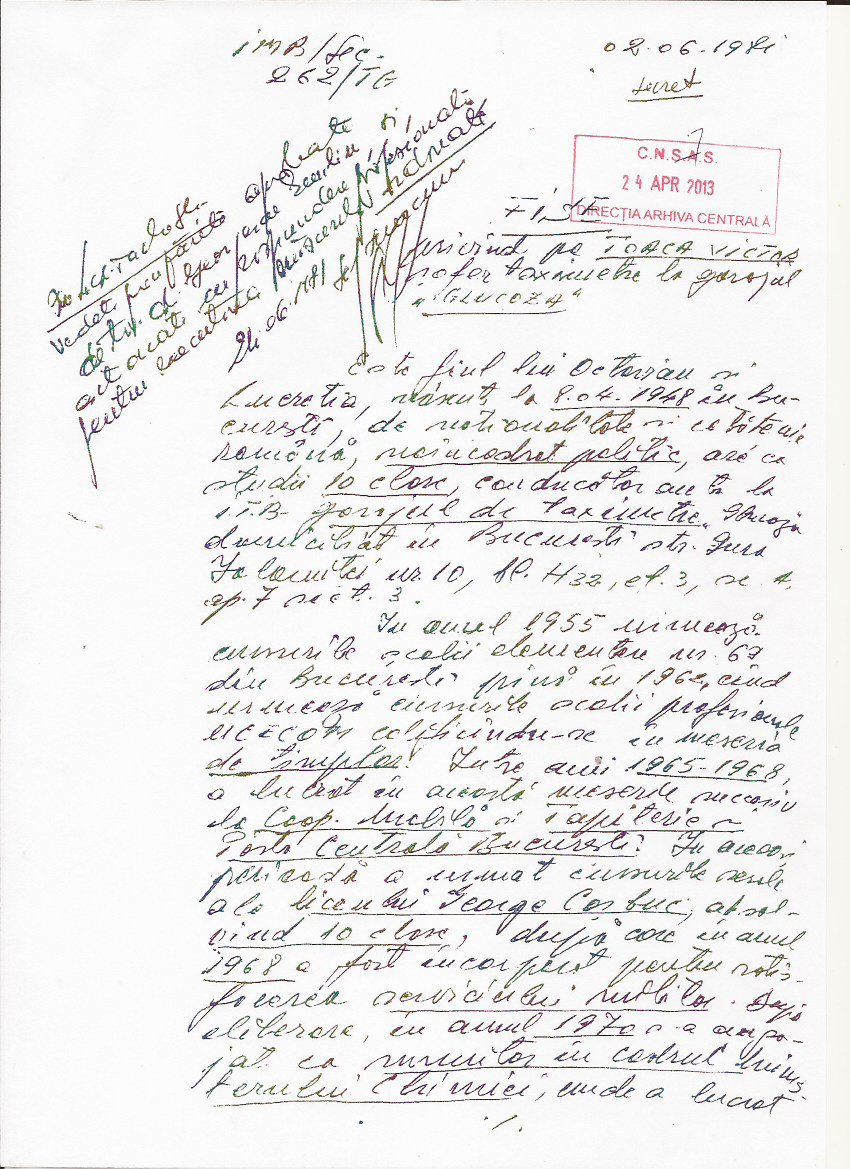 IMB/Sec.
262/TG
02.06.1981
Secret
C.N.S.A.S.
24 APR 2013
DIRECȚIA ARHIVA CENTRALĂ
FIȘĂ
privind pe TOACA VICTOR
șofer taximetre la garajul
"GLUCOZA"
Vedeți
pentru executarea
Este fiul lui Octavian și
Lucreția, născut la 8.04.1948 în Bu-
curești, de naționalitate și cetățenie
română, neîncadrat politic, are ca
studii 10 clase, conducător auto la
I.T.B. garajul de taximetre "Glucoza"
domiciliat în București str. Gura
Ialomiței nr. 10, bl. H32, et. 3, sc. A,
ap. 7 sect. 3.
În anul 1955 urmează
cursurile școlii elementare nr. 67
din București pînă în 1962, cînd
urmează cursurile școlii profesionale
UCECOM calificîndu-se în meseria
de tîmplar. Între anii 1965-1968,
a lucrat în această meserie succesiv
la Coop. Mobilă și Tapițerie și
Poșta Centrală București. În aceeași
perioadă a urmat cursurile serale
ale liceului George Coșbuc, absol-
vind 10 clase, după care în anul
1968 a fost încorporat pentru satis-
facerea serviciului militar. După
eliberare, în anul 1970 s-a anga-
jat ca în cadrul Minis-
terului Chimiei, unde a lucrat
./.